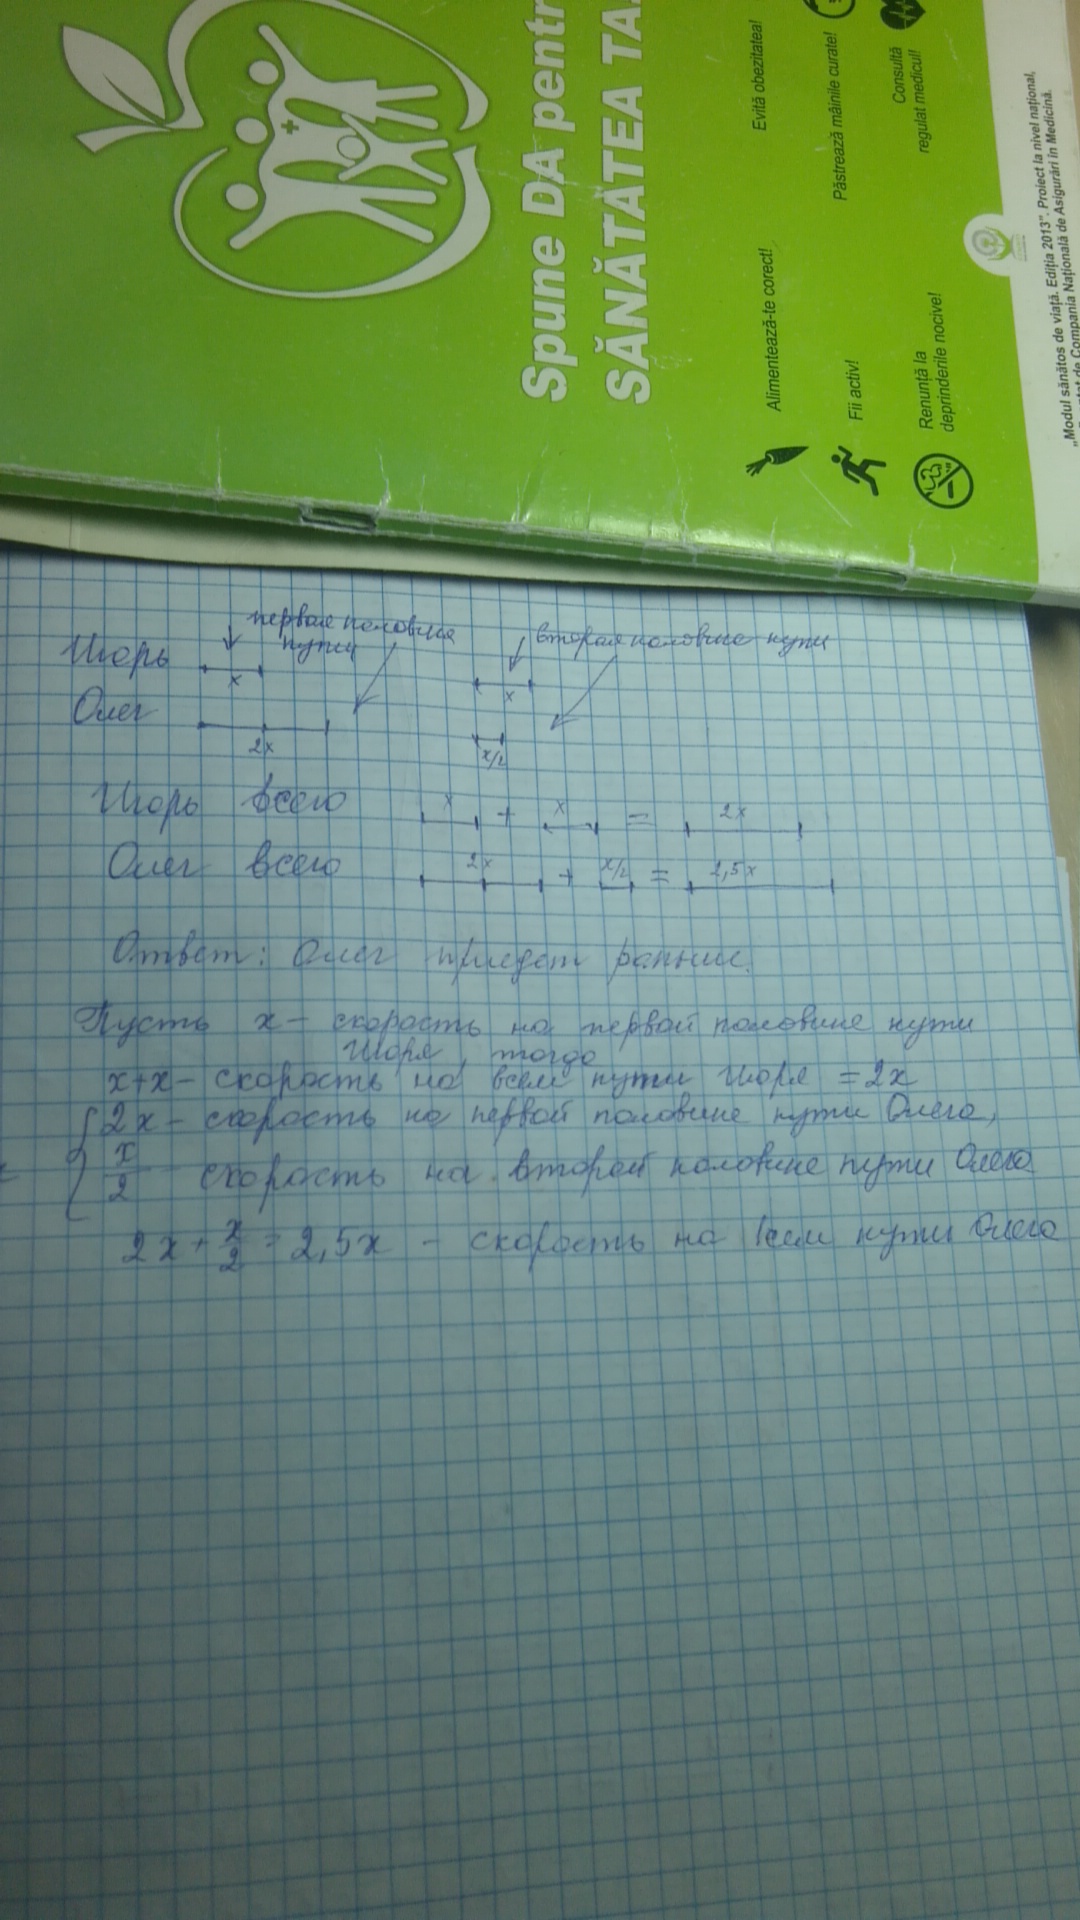 Spune DA pentr
SĂNĂTATEA TA
Alimentează-te corect!
Evită obezitatea!
Fii activ!
Păstrează mâinile curate!
Renunță la
deprinderile nocive!
Consultă
regulat medicul!
„Modul sănătos de viață. Ediția 2013". Proiect la nivel național,
de Compania Națională de Asigurări în Medicină.
первая половина
пути
вторая половина пути
Игорь
x
x
Олег
2x
x/2
Игорь всего x + x = 2x
Олег всего 2x + x/2 = 2,5x
Ответ: Олег придет раньше.
Пусть x – скорость на первой половине пути
Игоря, тогда
x+x – скорость на всем пути Игоря = 2x
2x – скорость на первой половине пути Олега,
x/2 скорость на второй половине пути Олега
2x + x/2 = 2,5x – скорость на всем пути Олега